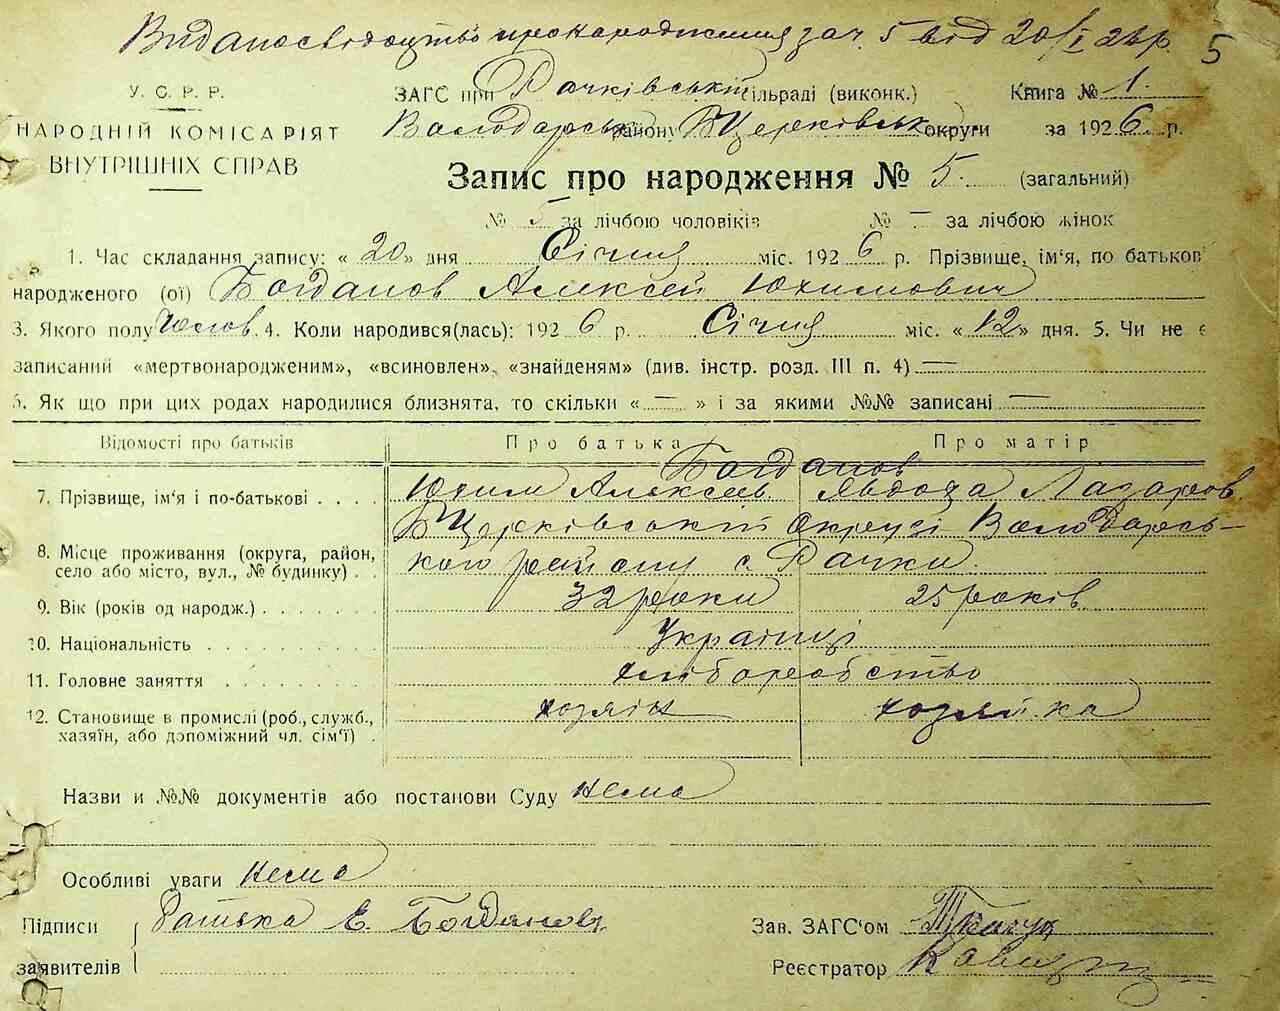 Видано свідоцтво про народження за ч. 5 від 20/I 26 р. 5
У. С. Р. Р.
ЗАГС при Рачківській сільраді (виконк.) Книга № 1.
НАРОДНІЙ КОМІСАРІЯТ
Володарськ району БЦерківськ округи за 1926 р.
ВНУТРІШНІХ СПРАВ
Запис про народження № 5. (загальний)
№ 5 за лічбою чоловіків № — за лічбою жінок
1. Час складання запису: «20» дня Січня міс. 1926 р. Прізвище, ім'я, по батькові
народженого (ої) Богданов Алексей Юхимович
3. Якого полу чолов. 4. Коли народився(лась): 1926 р. Січня міс. «12» дня. 5. Чи не є
записаний «мертвонародженим», «всиновлен», «знайденям» (див. інстр. розд. III п. 4) —
6. Як що при цих родах народилися близнята, то скільки « — » і за якими №№ записані —
Відомості про батьків Про батька Про матір
Богданов
7. Прізвище, ім'я і по-батькові . . . . Юхим Алексеев. Явдоха Лазаров
БЦерківський округі Володарсь-
8. Місце проживання (округа, район, кого району с. Рачки.
село або місто, вул., № будинку) . .
9. Вік (років од народж.) . . . . . . . 32 роки 25 років
10. Національність . . . . . . . . . . Українці
11. Головне заняття . . . . . . . . . хліборобство
12. Становище в промислі (роб., служб., хозяін хозяйка
хазяїн, або допоміжний чл. сім'ї) .
Назви и №№ документів або постанови Суду нема
Особливі уваги нема
Підписи Батька Е. Богданов Зав. ЗАГС'ом
заявителів Реєстратор